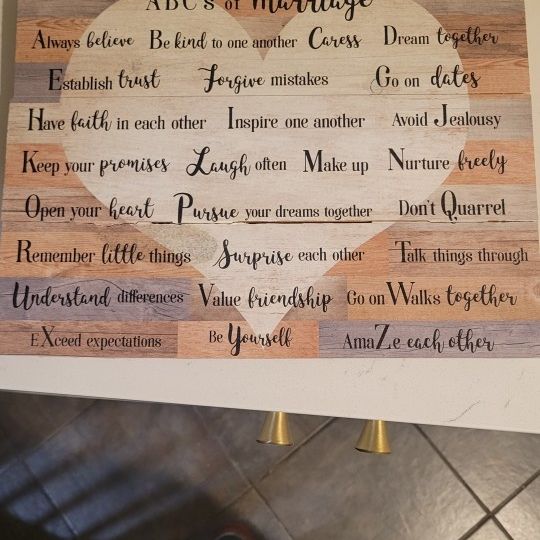 ABC's of Marriage
Always believe Be kind to one another Caress Dream together
Establish trust Forgive mistakes Go on dates
Have faith in each other Inspire one another Avoid Jealousy
Keep your promises Laugh often Make up Nurture freely
Open your heart Pursue your dreams together Don't Quarrel
Remember little things Surprise each other Talk things through
Understand differences Value friendship Go on Walks together
EXceed expectations Be Yourself AmaZe each other